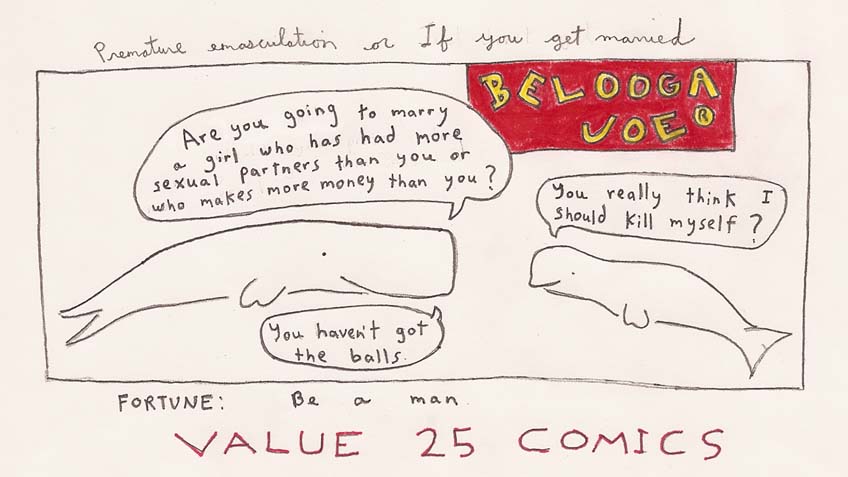 Premature emasculation or If you get married
BELOOGA
JOE®
Are you going to marry
a girl who has had more
sexual partners than you or
who makes more money than you?
You really think I
should kill myself?
You haven't got
the balls.
FORTUNE: Be a man.
VALUE 25 COMICS